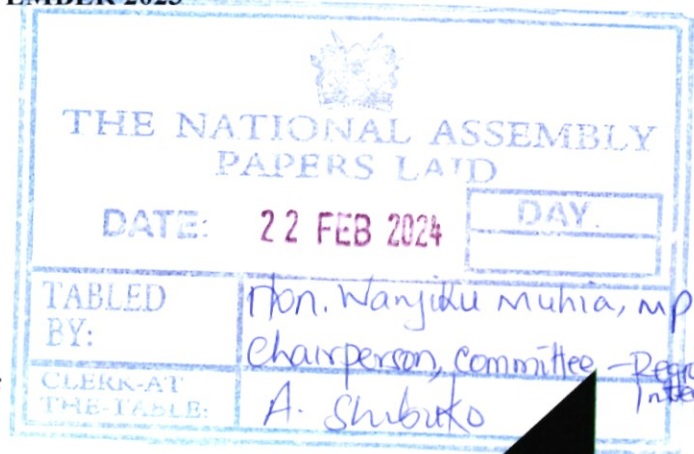 THE NATIONAL ASSEMBLY
PAPERS LAID
DATE: 22 FEB 2024 DAY.
TABLED BY: Hon. Wanjiku Muhia, MP
Chairperson, Committee –
CLERK-AT THE-TABLE: A. Shibuko